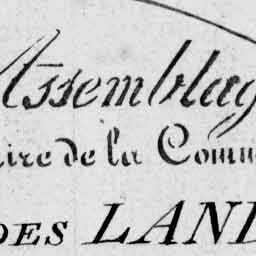 Assemblag
ire de la Comm
DES LAND